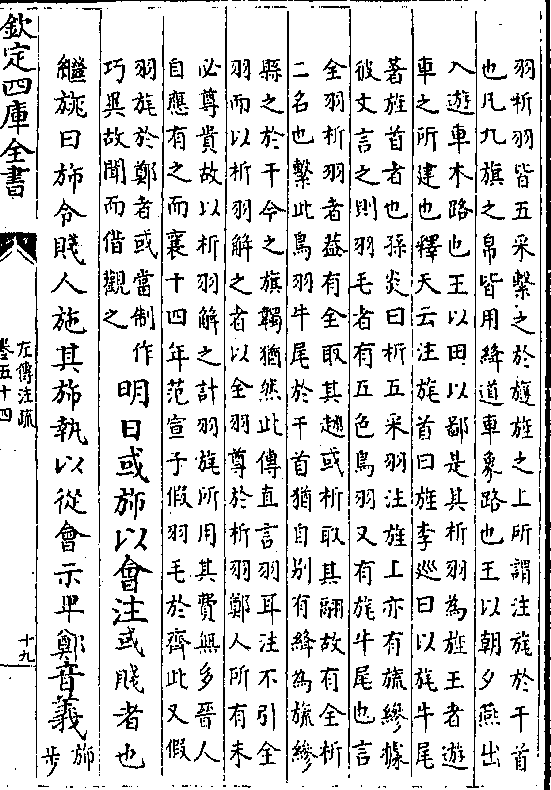 羽析羽皆五采繫之於旞旌之上所謂注旄於干首
也凡九旗之帛皆用絳道車象路也王以朝夕燕出
入遊車木路也王以田以鄙是其析羽為旌王者遊
車之所建也釋天云注旄首曰旌李巡曰以旄牛尾
著旌首者也孫炎曰析五采羽注旌上亦有旒縿據
彼文言之則羽毛者有五色鳥羽又有旄牛尾也言
全羽析羽者葢有全取其翅或析取其翮故有全析
二名也繫此鳥羽牛尾於干首猶自别有絳為旒縿
縣之於干今之旗韣猶然此傳直言羽耳注不引全
羽而以析羽解之者以全羽尊於析羽鄭人所有未
必尊貴故以析羽解之計羽旄所用其費無多晉人
自應有之而襄十四年范宣子假羽毛於齊此又假
羽旄於鄭者或當制作
巧異故聞而借觀之
明日或斾以會注或賤者也
繼旐曰斾令賤人施其斾執以從會示卑鄭音義
斾
步
欽定四庫全書
左傳注疏
卷五十四
十九